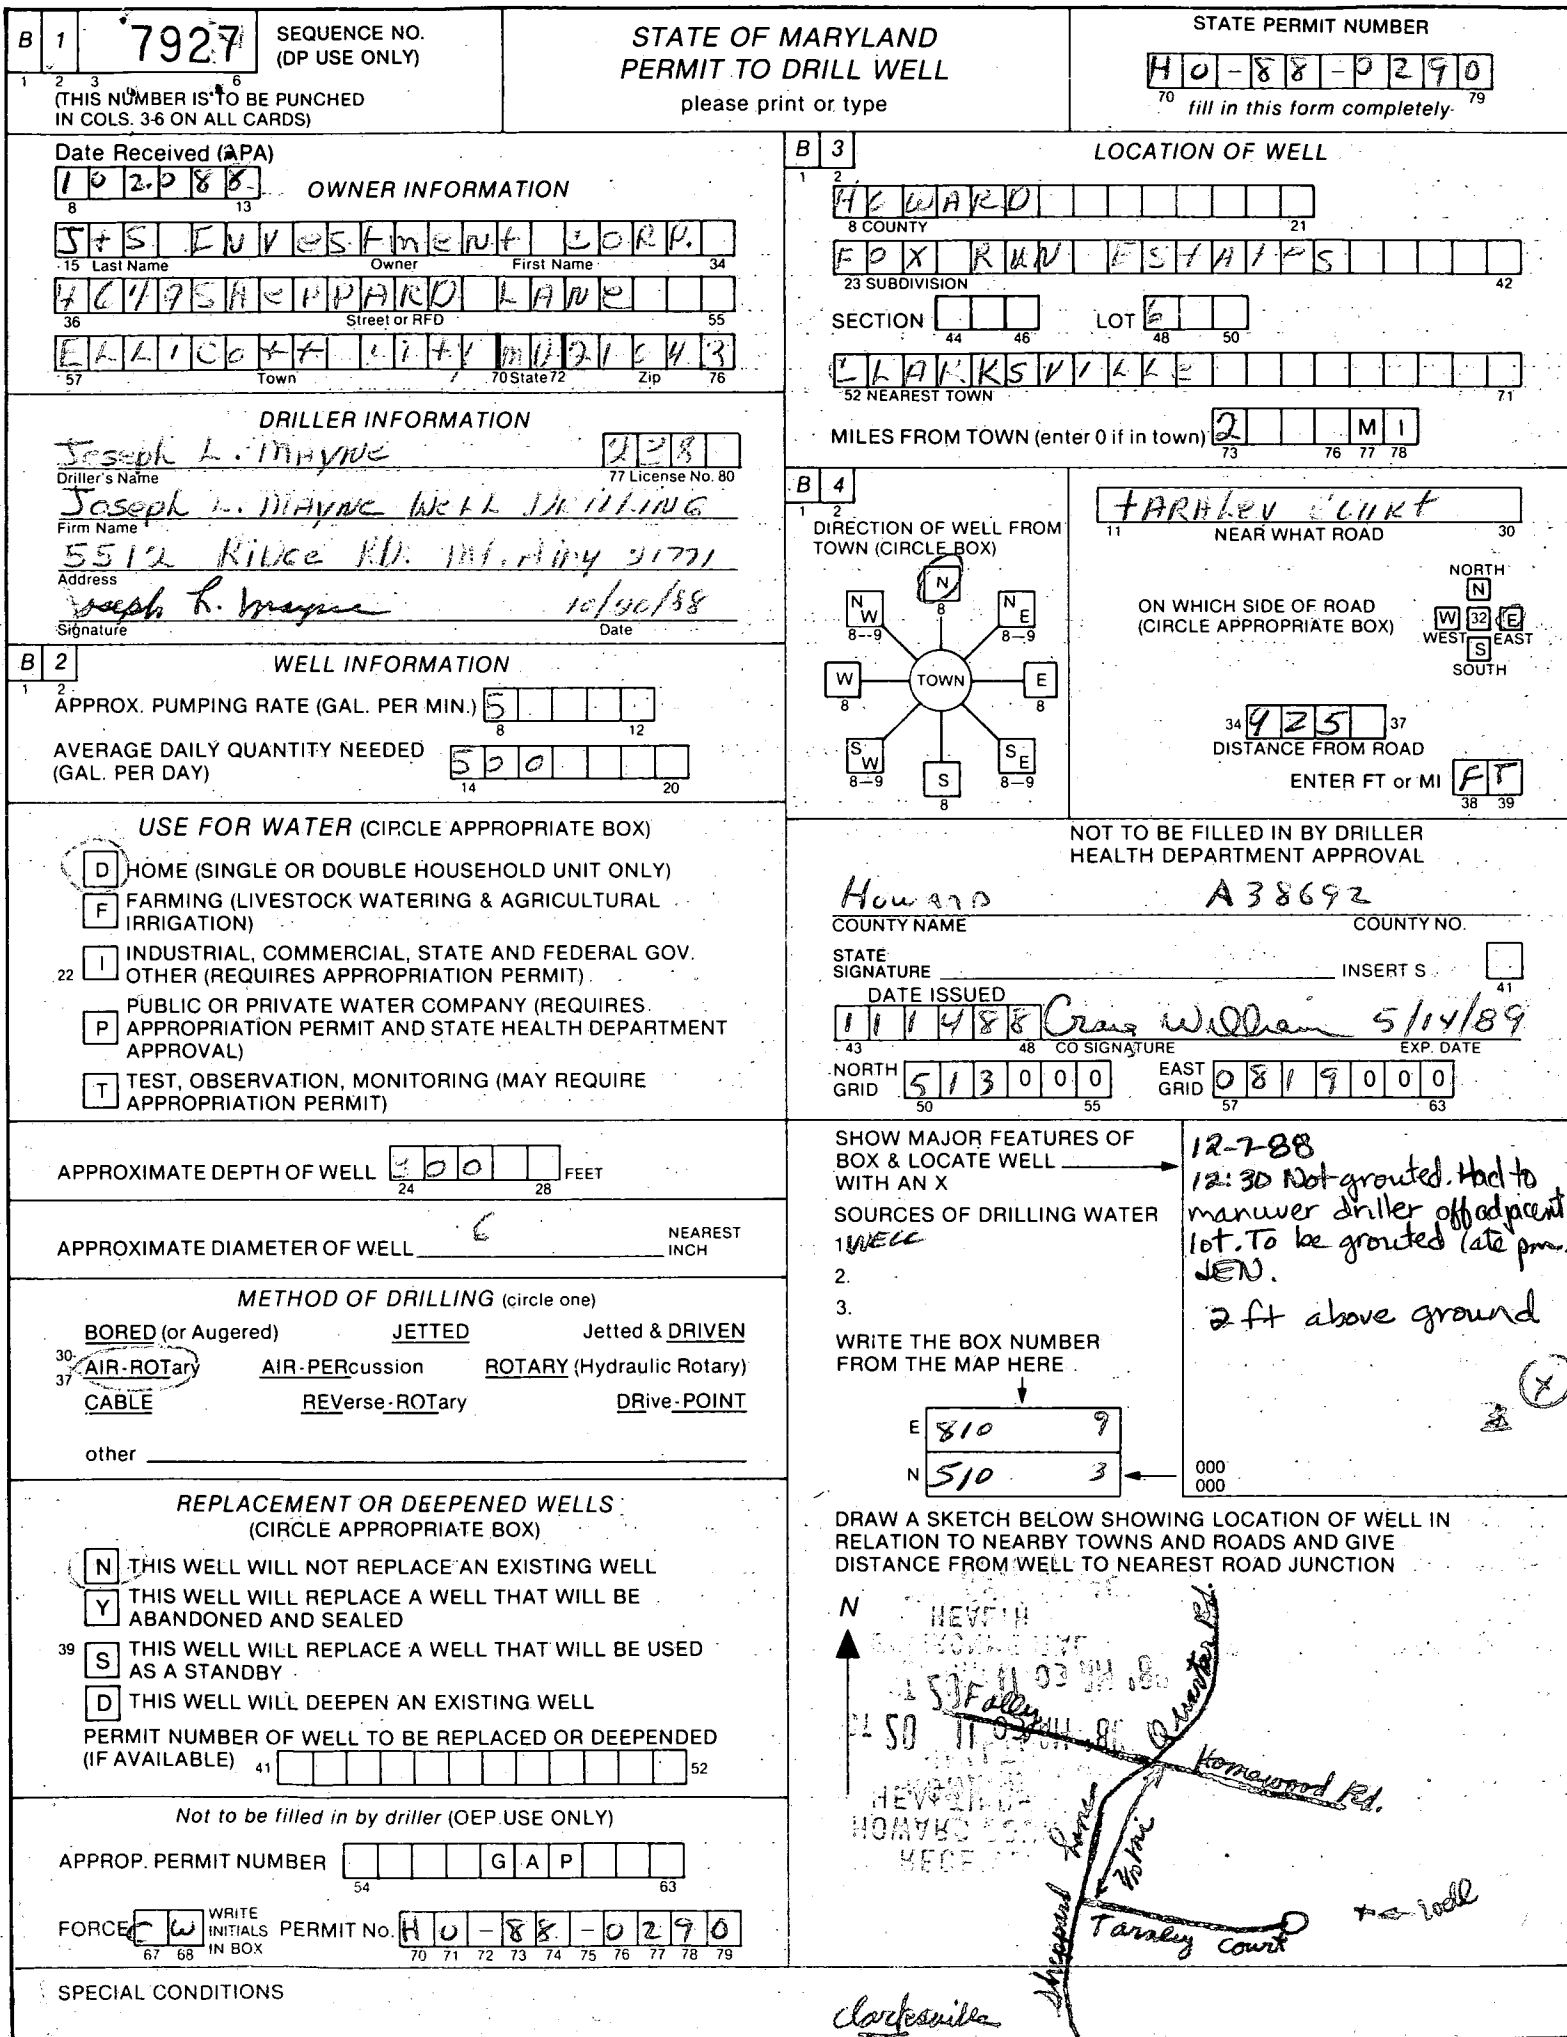 B 1 7927 SEQUENCE NO.
(DP USE ONLY)
1 2 3 6
(THIS NUMBER IS TO BE PUNCHED
IN COLS. 3-6 ON ALL CARDS)
STATE OF MARYLAND
PERMIT TO DRILL WELL
please print or type
STATE PERMIT NUMBER
HO-88-0290
70 fill in this form completely 79
Date Received (APA)
102088
8 13
OWNER INFORMATION
J+S Investment CORP.
15 Last Name Owner First Name 34
4679 SHEPPARD LANE
36 Street or RFD 55
ELLICott City MD 21043
57 Town 70 State 72 Zip 76
DRILLER INFORMATION
Joseph L. MAYNE 228
Driller's Name 77 License No. 80
Joseph L. MAYNE Well DRILLING
Firm Name
5512 Ridge RD. Mt. Airy 21771
Address
Joseph L. Mayne 10/20/88
Signature Date
B 2 WELL INFORMATION
1 2
APPROX. PUMPING RATE (GAL. PER MIN.) 5
8 12
AVERAGE DAILY QUANTITY NEEDED
(GAL. PER DAY) 500
14 20
USE FOR WATER (CIRCLE APPROPRIATE BOX)
D HOME (SINGLE OR DOUBLE HOUSEHOLD UNIT ONLY)
F FARMING (LIVESTOCK WATERING & AGRICULTURAL
IRRIGATION)
22 I INDUSTRIAL, COMMERCIAL, STATE AND FEDERAL GOV.
OTHER (REQUIRES APPROPRIATION PERMIT)
P PUBLIC OR PRIVATE WATER COMPANY (REQUIRES
APPROPRIATION PERMIT AND STATE HEALTH DEPARTMENT
APPROVAL)
T TEST, OBSERVATION, MONITORING (MAY REQUIRE
APPROPRIATION PERMIT)
APPROXIMATE DEPTH OF WELL 00 FEET
24 28
APPROXIMATE DIAMETER OF WELL 6 NEAREST
INCH
METHOD OF DRILLING (circle one)
BORED (or Augered) JETTED Jetted & DRIVEN
30-37 AIR-ROTary AIR-PERcussion ROTARY (Hydraulic Rotary)
CABLE REVerse-ROTary DRive-POINT
other
REPLACEMENT OR DEEPENED WELLS
(CIRCLE APPROPRIATE BOX)
N THIS WELL WILL NOT REPLACE AN EXISTING WELL
Y THIS WELL WILL REPLACE A WELL THAT WILL BE
ABANDONED AND SEALED
39 S THIS WELL WILL REPLACE A WELL THAT WILL BE USED
AS A STANDBY
D THIS WELL WILL DEEPEN AN EXISTING WELL
PERMIT NUMBER OF WELL TO BE REPLACED OR DEEPENDED
(IF AVAILABLE) 41 52
Not to be filled in by driller (OEP USE ONLY)
APPROP. PERMIT NUMBER G A P
54 63
FORCE CW WRITE INITIALS IN BOX PERMIT No. HO-88-0290
67 68 70 71 72 73 74 75 76 77 78 79
SPECIAL CONDITIONS
B 3 LOCATION OF WELL
1 2
HOWARD
8 COUNTY 21
FOX RUN ESTATES
23 SUBDIVISION 42
SECTION LOT 6
44 46 48 50
CLARKSVILLE
52 NEAREST TOWN 71
MILES FROM TOWN (enter 0 if in town) 2 M I
73 76 77 78
B 4
1 2
DIRECTION OF WELL FROM
TOWN (CIRCLE BOX)
N
8
NW NE
8-9 8-9
W TOWN E
8 8
SW SE
8-9 8-9
S
8
TARALEY COURT
11 NEAR WHAT ROAD 30
ON WHICH SIDE OF ROAD
(CIRCLE APPROPRIATE BOX)
NORTH
N
W 32 E
WEST EAST
S
SOUTH
34 925 37
DISTANCE FROM ROAD
ENTER FT or MI FT
38 39
NOT TO BE FILLED IN BY DRILLER
HEALTH DEPARTMENT APPROVAL
HOWARD A38692
COUNTY NAME COUNTY NO.
STATE
SIGNATURE INSERT S
41
DATE ISSUED
111488 Craig William 5/14/89
43 48 CO SIGNATURE EXP. DATE
NORTH GRID 513000 EAST GRID 0819000
50 55 57 63
SHOW MAJOR FEATURES OF
BOX & LOCATE WELL
WITH AN X
SOURCES OF DRILLING WATER
1 WELL
2.
3.
WRITE THE BOX NUMBER
FROM THE MAP HERE
E 810 9
N 510 3
000
000
12-7-88
12:30 Not grouted. Had to
manuver driller off adjacent
lot. To be grouted late pm.
JEN.
2 ft above ground
X
DRAW A SKETCH BELOW SHOWING LOCATION OF WELL IN
RELATION TO NEARBY TOWNS AND ROADS AND GIVE
DISTANCE FROM WELL TO NEAREST ROAD JUNCTION
N
Folly Quarter Rd.
Homewood Rd.
Sheppard Lane
Tarsley Court
well
Clarksville